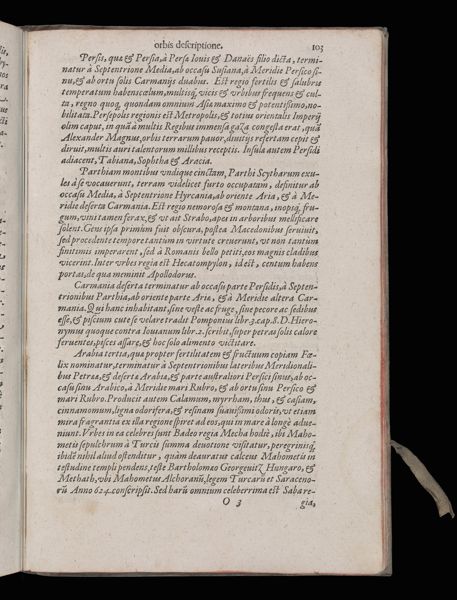 orbis descriptione. 103
Persis, quæ & Persia, à Persa Iouis & Danaës filio dicta, termi-
natur à Septentrione Media, ab occasu Susiana, à Meridie Persico si-
nu, & ab ortu solis Carmanijs duabus. Est regio fertilis & salubris
temperatum habens cælum, multisq́; vicis & vrbibus frequens & cul-
ta, regno quoq; quondam omnium Asia maximo & potentissimo, no-
bilitata. Persepolis regionis est Metropolis, & totius orientalis Imperij
olim caput, in quã à multis Regibus immensa gaza congesta erat, quã
Alexander Magnus, orbis terrarum pauor, diuitijs refertam cepit &
diruit, multis auri talentorum millibus receptis. Insulæ autem Persidi
adiacent, Tabiana, Sophtha & Aracia.
Parthiam montibus vndique cinctam, Parthi Scytharum exu-
les à se vocauerunt, terram videlicet furto occupatam, definitur ab
occasu Media, à Septentrione Hyrcania, ab oriente Aria, & à Me-
ridie deserta Carmania. Est regio nemorosa & montana, inopiq́; fru-
gum, vini tamen ferax, & vt ait Strabo, apes in arboribus mellificare
solent. Gens ipsa primùm fuit obscura, postea Macedonibus seruiuit,
sed procedente tempore tantùm in virtute creuerunt, vt non tantùm
finitimis imperarent, sed à Romanis bello petiti, eos magnis cladibus
vicerint. Inter vrbes regia est Hecatompylon, id est, centum habens
portas, de qua meminit Apollodorus.
Carmania deserta terminatur ab occasu parte Persidis, à Septen-
trionibus Parthia, ab oriente parte Ariæ, & à Meridie altera Car-
mania. Qui hanc inhabitant, sine veste ac fruge, sine pecore ac sedibus
esse, & piscium cute se velare tradit Pomponius libr. 3. cap. 8. D. Hiero-
nymus quoque contra Iouianum libr. 2. scribit, super petras solis calore
feruentes, pisces assare, & hoc solo alimento victitare.
Arabia tertia, qua propter fertilitatem & fructuum copiam Fœ-
lix nominatur, terminatur à Septentrionibus lateribus Meridionali-
bus Petreæ, & deserta Arabiæ, & parte australiori Persici sinus, ab oc-
casu sinu Arabico, à Meridie mari Rubro, & ab ortu sinu Persico &
mari Rubro. Producit autem Calamum, myrrham, thus, & casiam,
cinnamomum, ligna odorifera, & resinam suauissimi odoris, vt etiam
mira fragrantia ex illa regione spiret ad eos, qui in mare à longè adue-
niunt. Vrbes in ea celebres sunt Badeo regia Mecha hodiè, ibi Maho-
metis sepulchrum à Turcis summa deuotione visitatur, peregrinisq́;
ibidẽ nihil aliud ostenditur, quàm deauratus calceus Mahometis in
testudine templi pendens, teste Bartholomæo Georgeuitz Hungaro, &
Methath, vbi Mahometus Alchoranũ, legem Turcarũ et Saraceno-
rũ Anno 624. conscripsit. Sed harũ omnium celeberrima est Saba re-
O 3 gia,